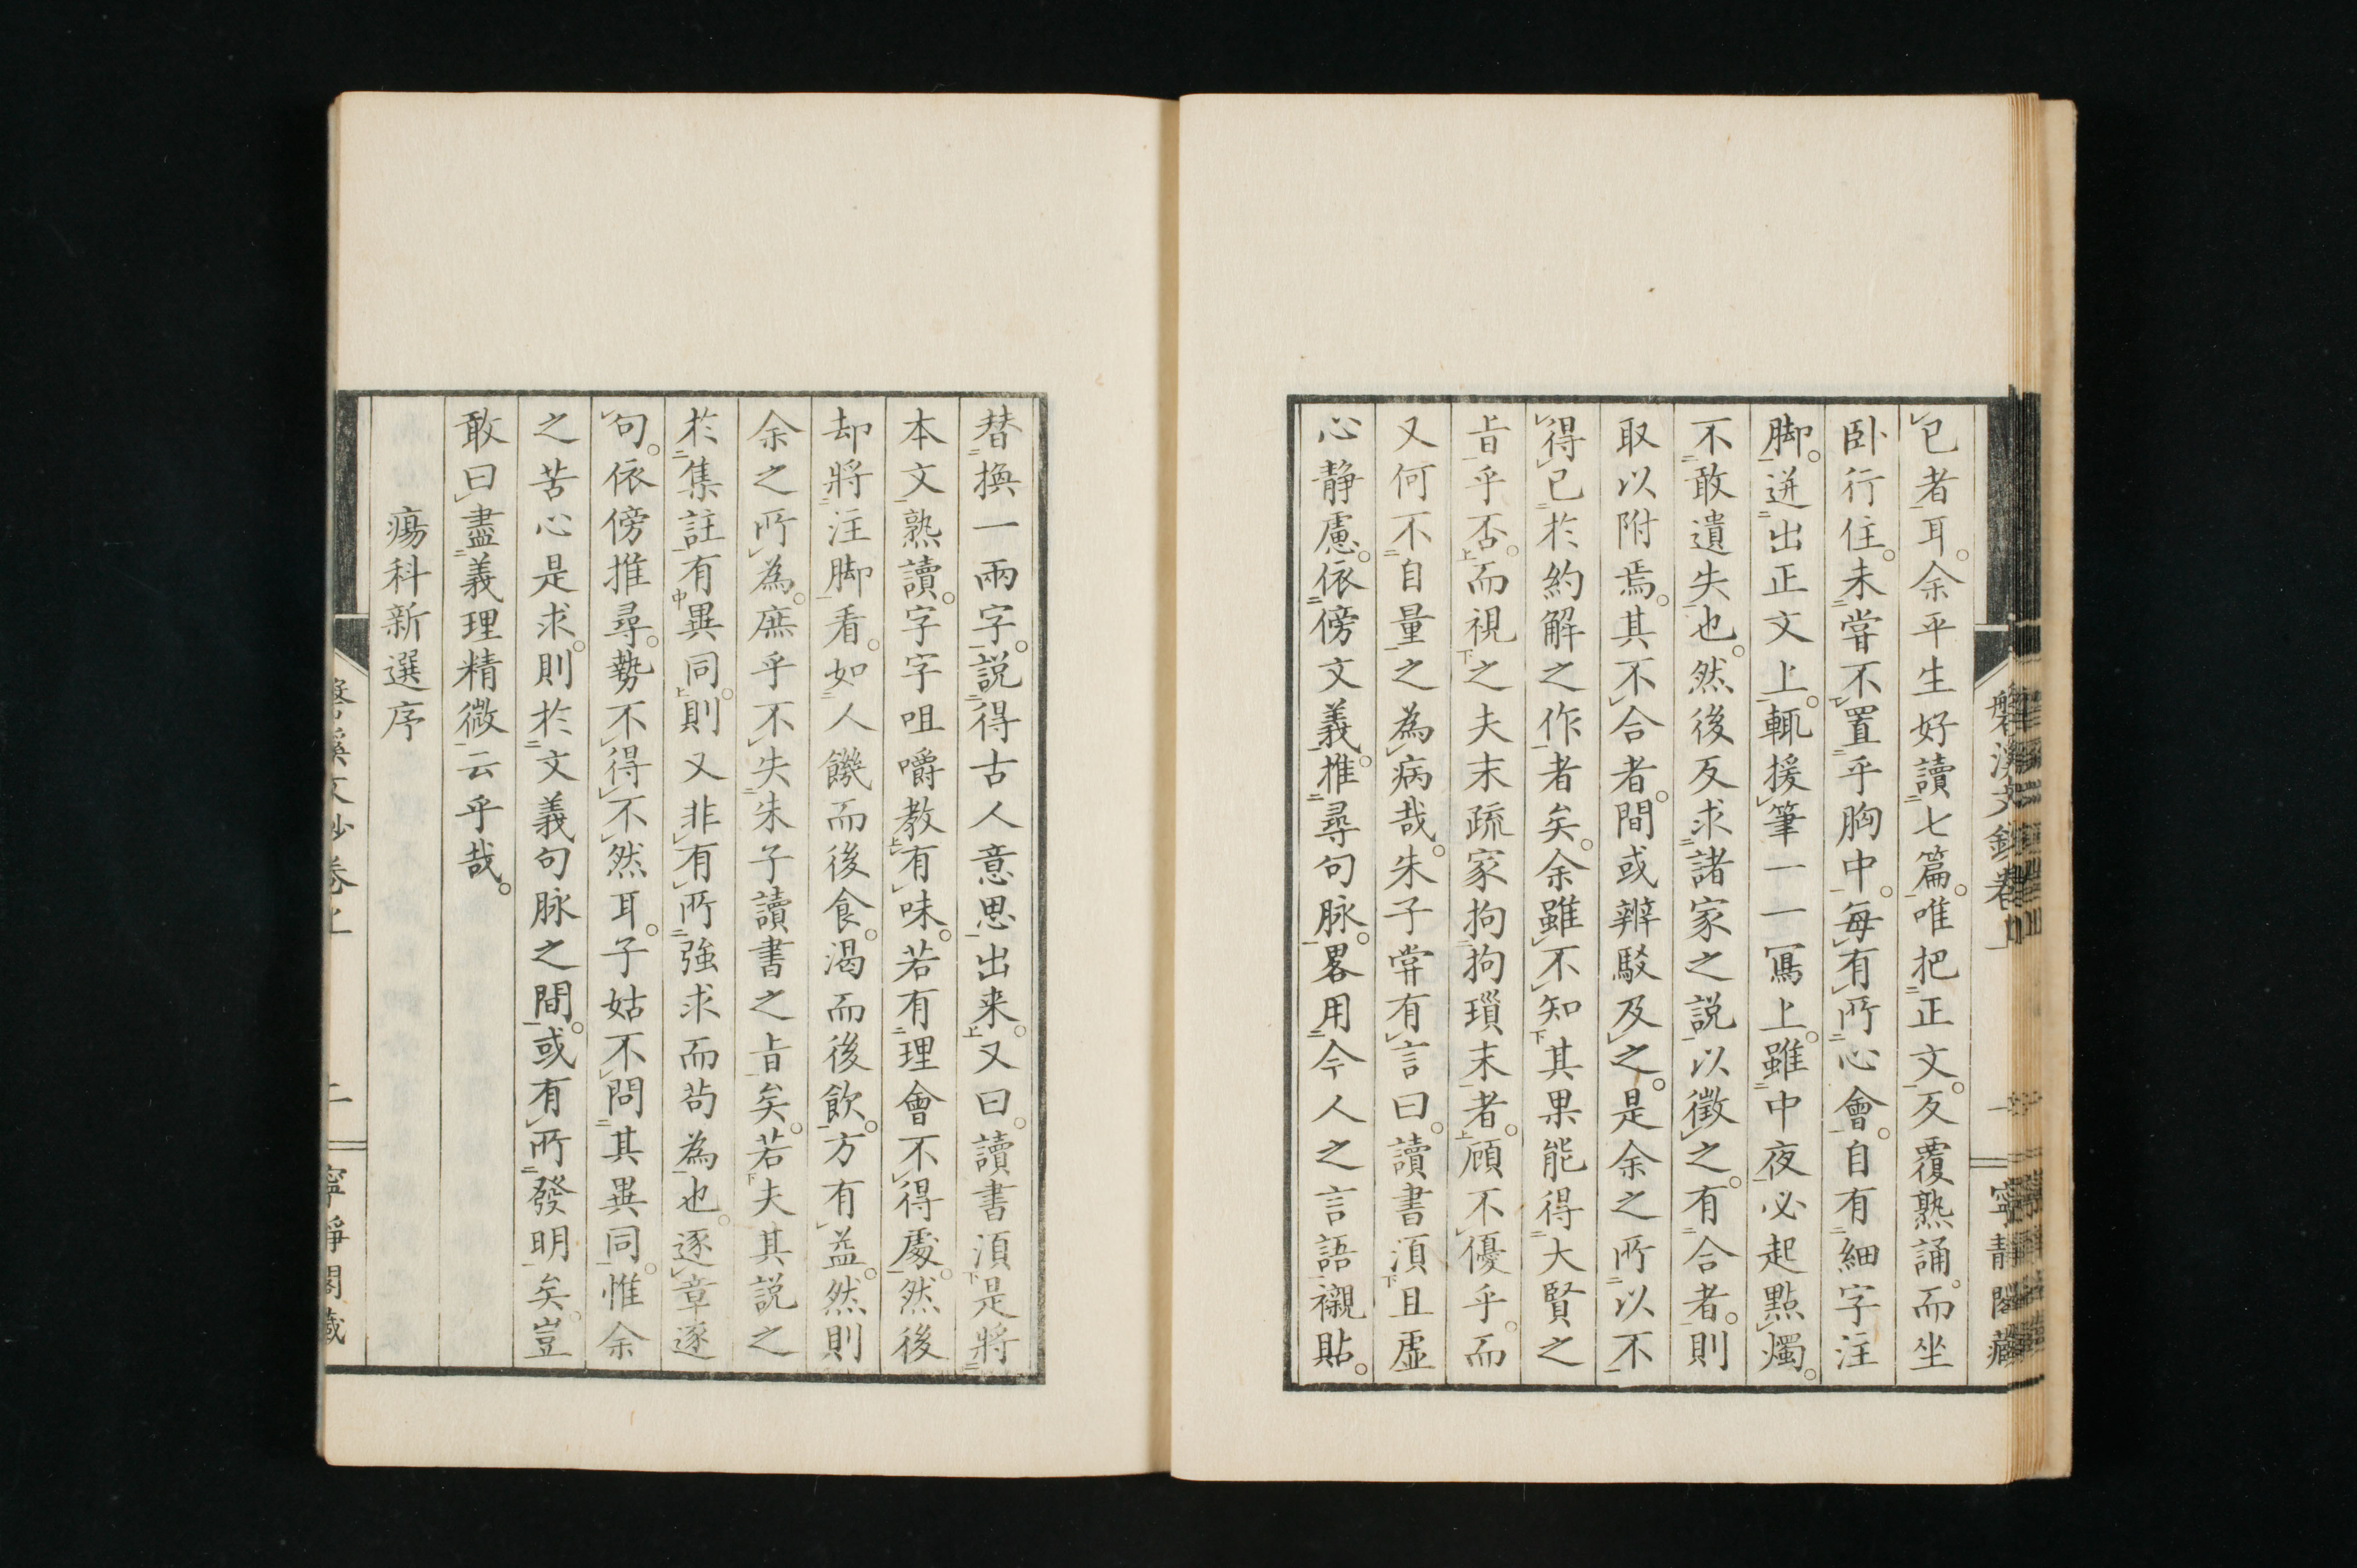 已者耳。余平生好讀七篇。唯把正文。反覆熟誦。而坐
臥行住。未嘗不置乎胸中。每有所心會。自有細字注
脚。迸出正文上。輒援筆一一寫上。雖中夜必起點燭。
不敢遺失也。然後反求諸家之説以徵之。有合者。則
取以附焉。其不合者。間或辨駁及之。是余之所以不
得已於約解之作者矣。余雖不知其果能得大賢之
旨乎否。而視之夫末疏家拘拘瑣末者。顧不優乎。而
又何不自量之為病哉。朱子嘗有言曰。讀書須且虛
心靜慮。依傍文義。推尋句脉。畧用今人之言語襯貼。
替換一兩字。説得古人意思出来。又曰。讀書須是將
本文熟讀。字字咀嚼教有味。若有理會不得處。然後
却將注脚看。如人饑而後食。渴而後飲。方有益。然則
余之所為。庶乎不失朱子讀書之旨矣。若夫其説之
於集註有異同。則又非有所強求而苟為也。逐章逐
句。依傍推尋。勢不得不然耳。子姑不問其異同。惟余
之苦心是求。則於文義句脉之間。或有所發明矣。豈
敢曰盡義理精微云乎哉。
瘍科新選序
磐溪文鈔卷上
二
寧靜閣藏